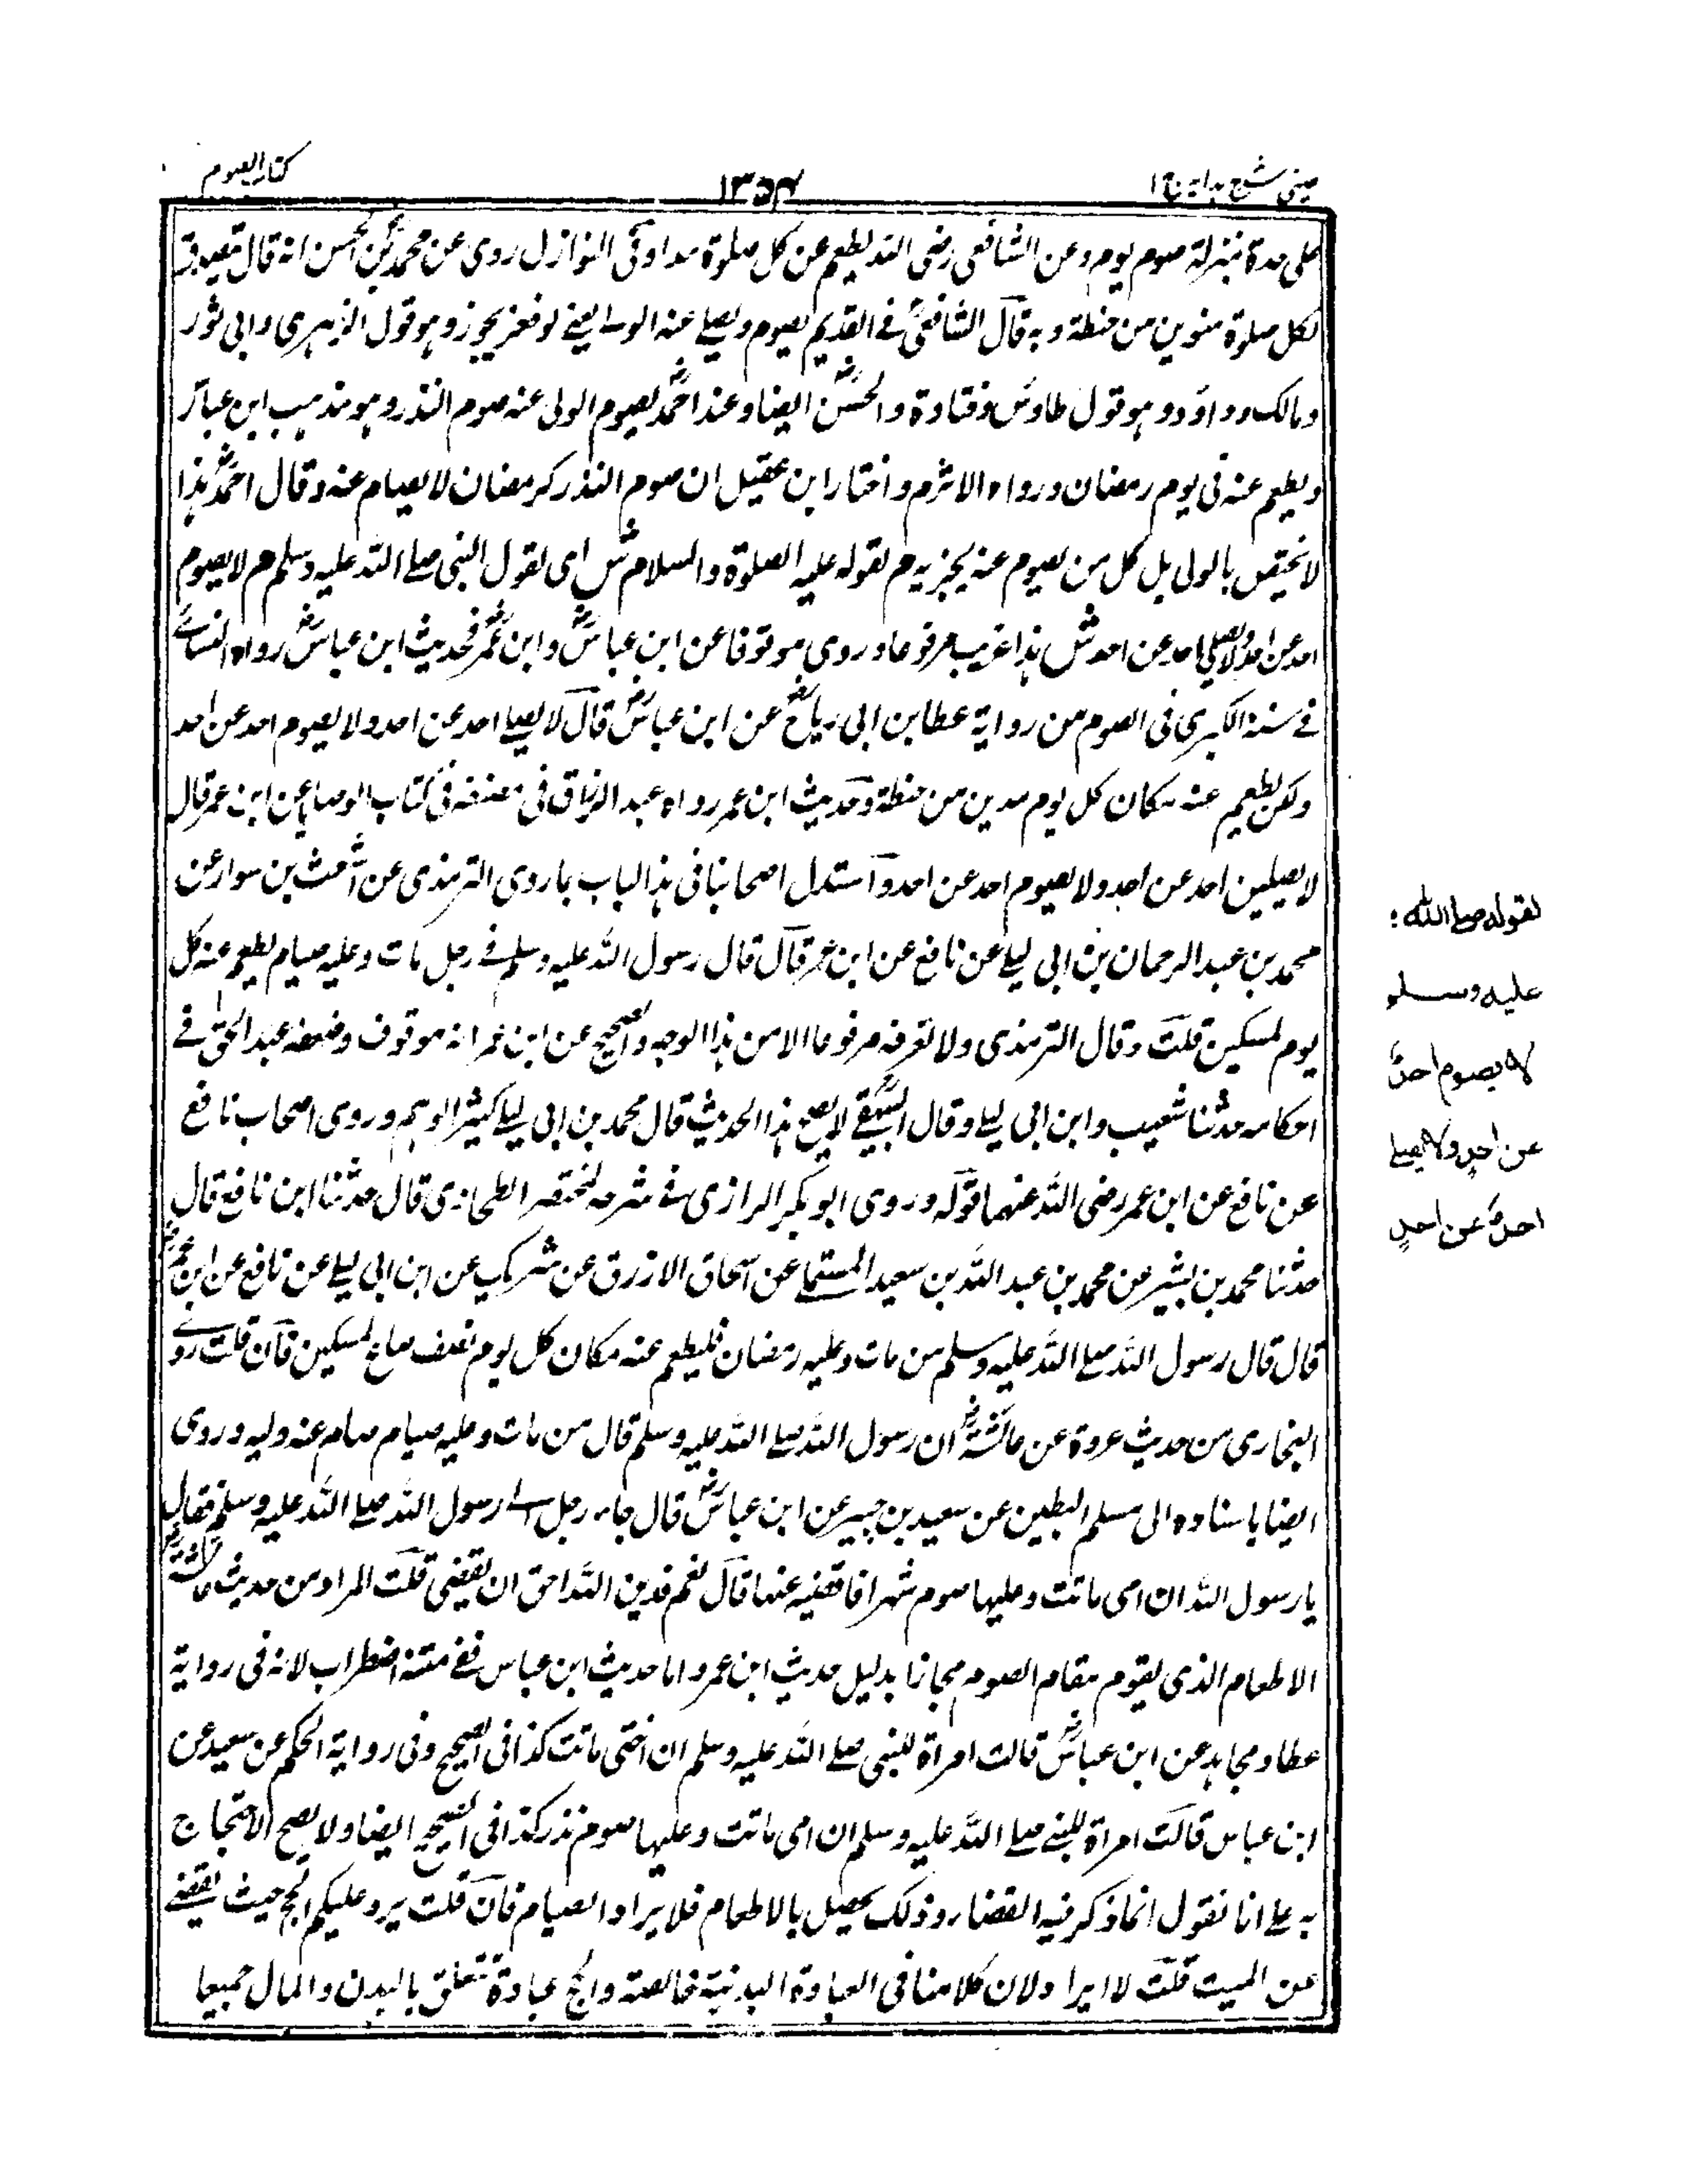 عینی شرح ہدایہ ج ۱
۱۳۵۴
کتاب الصوم
علی حدة بمنزلة صوم یوم وعن الشافعی رضی اللہ یطعم عن کل صلوة مدا وفی النوازل روی عن محمد بن الحسن انہ قال یتصدق
لکل صلوة منوین من حنطة وبہ قال الشافعی فے القدیم یصوم ویصلے عنہ الولے یعنے لو فعل یجوز وہو قول الزہری وابی ثور
ومالک وداؤد وہو قول طاوس وقتادة والحسن ایضا وعند احمد یصوم الولی عنہ صوم النذر وہو مذہب ابن عباس
ویطعم عنہ فی یوم رمضان ورواہ الاثرم واختار ابن عقیل ان صوم النذر کرمضان لا یصام عنہ وقال احمد ہذا
لا یختص بالولی بل کل من یصوم عنہ یجزیہ م لقولہ علیہ الصلوة والسلام ش ای لقول النبی صلے اللہ علیہ وسلم م لا یصوم
احد عن احد ولا یصلی احد عن احد ش ہذا غریب مرفوعا وروی موقوفا عن ابن عباس وابن عمر فحدیث ابن عباس رواہ النسائے
فے سننہ الکبری فی الصوم من روایة عطا بن ابی رباح عن ابن عباس قال لا یصلے احد عن احد ولا یصوم احد عن احد
ولکن یطعم عنہ مکان کل یوم مدین من حنطة وحدیث ابن عمر رواہ عبد الرزاق فی مصنفہ فی کتاب الوصایا عن ابن عمر قال
لا یصلین احد عن احد ولا یصوم احد عن احد واستدل اصحابنا فی ہذا الباب بما روی الترمذی عن اشعث بن سوار عن
محمد بن عبد الرحمان بن ابی لیلے عن نافع عن ابن عمر قال قال رسول اللہ علیہ وسلم فے رجل مات وعلیہ صیام یطعم عنہ کل
یوم لمسکین قلت وقال الترمذی ولا نعرفہ مرفوعا الا من ہذا الوجہ والصحیح عن ابن عمر انہ موقوف وضعفہ عبد الحق فے
احکامہ حدثنا شعیب وابن ابی لیلے وقال البیہقے لا یصح ہذا الحدیث قال محمد بن ابی لیلے کثیر الوہم وروی اصحاب نافع
عن نافع عن ابن عمر رضی اللہ عنہما قولہ وروی ابو بکر الرازی فے شرحہ لمختصر الطحاوی قال حدثنا ابن نافع قال
حدثنا محمد بن بشیر عن محمد بن عبد اللہ بن سعید المستملے عن اسحاق الازرق عن شریک عن ابن ابی لیلے عن نافع عن ابن عمر
قال قال رسول اللہ صلے اللہ علیہ وسلم من مات وعلیہ رمضان فلیطعم عنہ مکان کل یوم نصف صاع لمسکین فان قلت روے
البخاری من حدیث عروة عن عائشة ان رسول اللہ صلے اللہ علیہ وسلم قال من مات وعلیہ صیام صام عنہ ولیہ وروی
ایضا باسنادہ الی مسلم البطین عن سعید بن جبیر عن ابن عباس قال جاء رجل الے رسول اللہ صلے اللہ علیہ وسلم فقال
یا رسول اللہ ان امی ماتت وعلیہا صوم شہر افاقضیہ عنہا قال نعم فدین اللہ احق ان یقضی قلت المراد من حدیث عائشة
الاطعام الذی یقوم مقام الصوم مجازا بدلیل حدیث ابن عمر واما حدیث ابن عباس ففے متنہ اضطراب لانہ فی روایة
عطا ومجاہد عن ابن عباس قالت امراة للنبی صلے اللہ علیہ وسلم ان اختی ماتت کذا فی الصحیح وفی روایة الحکم عن سعید عن
ابن عباس قالت امراة للنبے صلے اللہ علیہ وسلم ان امی ماتت وعلیہا صوم نذر کذا فی الصحیح ایضا ولا یصح الاحتجاج
بہ علے انا نقول انما ذکر فیہ القضاء وذلک یحصل بالاطعام فلا یراد الصیام فان قلت یرد علیکم الحج حیث یقضے
عن المیت قلت لا ایراد لان کلامنا فی العبادة البدنیة خالصة والحج عبادة تتعلق بالبدن والمال جمیعا
لقوله صلے اللہ
علیه وسلم
لا یصوم احدٌ
عن احدٍ ولا یصلے
احدٌ عن احدٍ